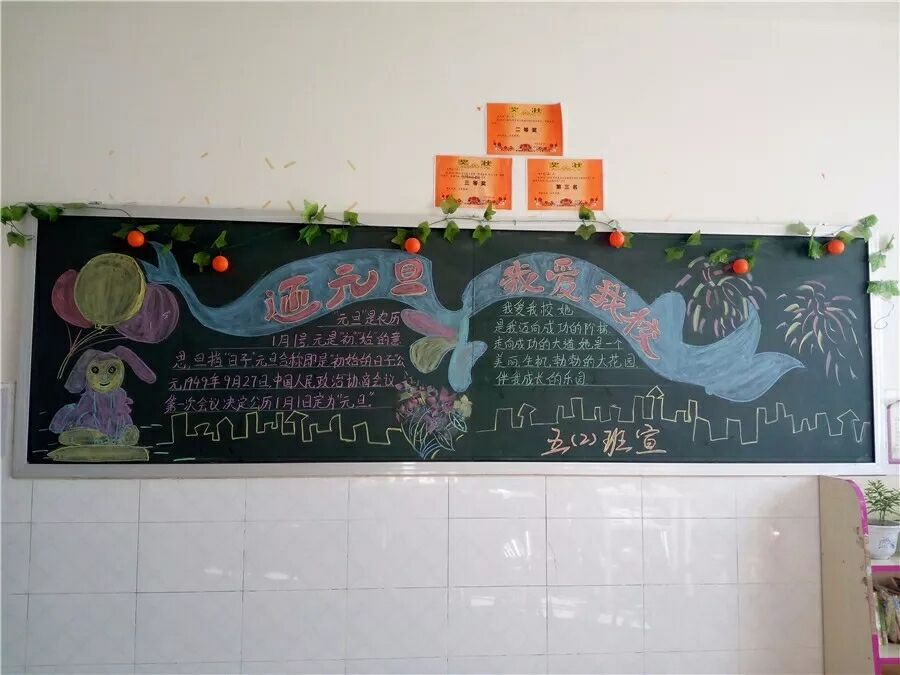 奖状
二等奖
奖状
三等奖
奖状
第三名
迎元旦
我爱我校
"元旦"是农历
1月1号,元是初"始"的意
思,旦指"日子"元旦合称即是"初始的日子"公
元1949年9月27日,中国人民政治协商会议
第一次会议决定公历1月1日定为"元旦".
我爱我校,她
是我迈向成功的阶梯
走向成功的大道,她是一个
美丽生机,勃勃的大花园
伴我成长的乐园
五(2)班宣